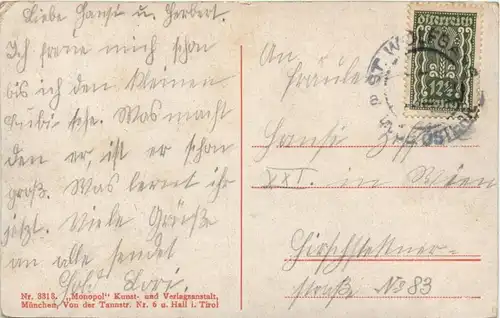 Liebe Hansi u. Herbert.
Ich freue mich schon
bis ich den kleinen
Bubi sehe. Was macht
den er, ist er schon
groß. Was lernt ihr
jetzt. Viele Grüße
an alle sendet
Lori.
Nr. 3313. „Monopol" Kunst- und Verlagsanstalt,
München, Von der Tannstr. Nr. 6 u. Hall i. Tirol
österreich
12½
ST. WOLFGA
An
Fräulein
Hansi
XXI. in Wien
Hirschstettner-
straße No 83